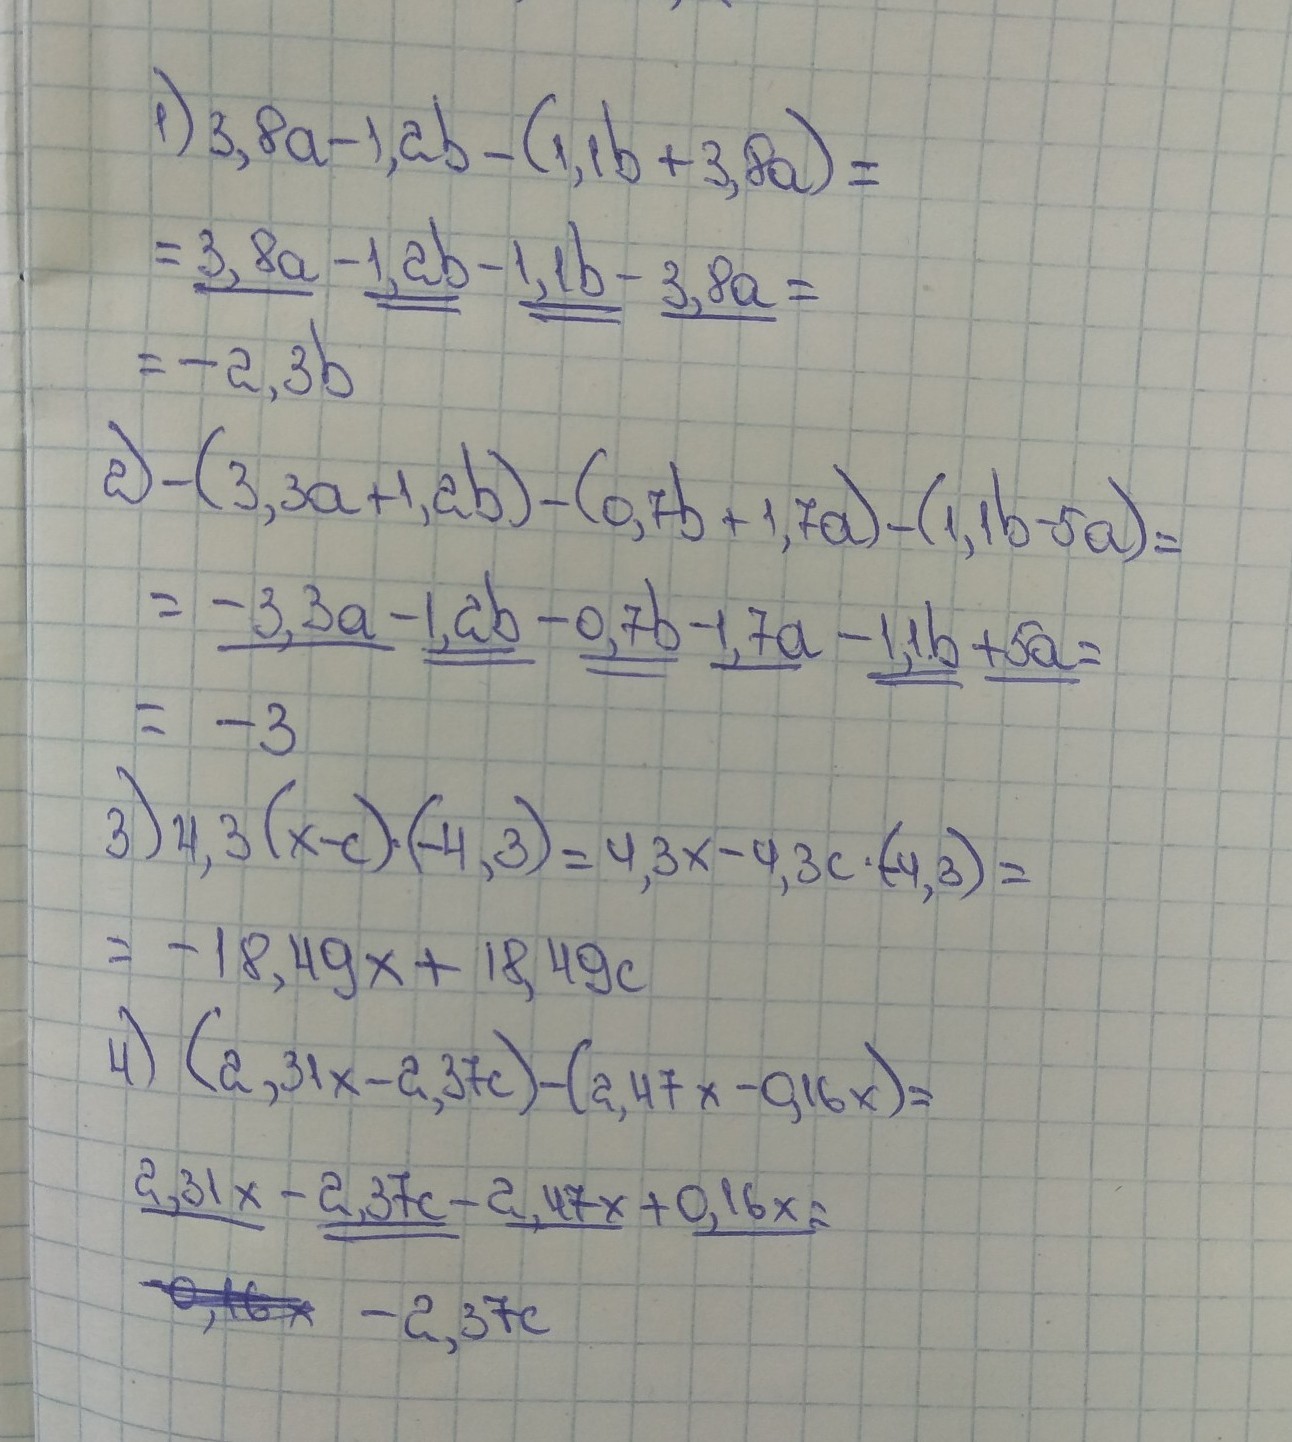 1) 3,8a-1,2b-(1,1b+3,8a)=
=3,8a-1,2b-1,1b-3,8a=
=-2,3b
2)-(3,3a+1,2b)-(0,7b+1,7a)-(1,1b-5a)=
= -3,3a-1,2b-0,7b-1,7a-1,1b+5a=
= -3
3) 4,3(x-c)·(-4,3)=4,3x-4,3c·(-4,3)=
= -18,49x+18,49c
4) (2,31x-2,37c)-(2,47x-0,16x)=
2,31x-2,37c-2,47x+0,16x=
-0,16x -2,37c